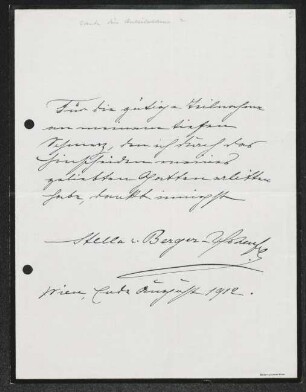 Für die gütige Teilnahme
an meinem tiefen
Schmerz, den ich durch das
Hinscheiden meines
geliebten Gatten erlitten
habe, dankt innigst
Stella v. Berger-Hohenfels
Wien, Ende August 1912.